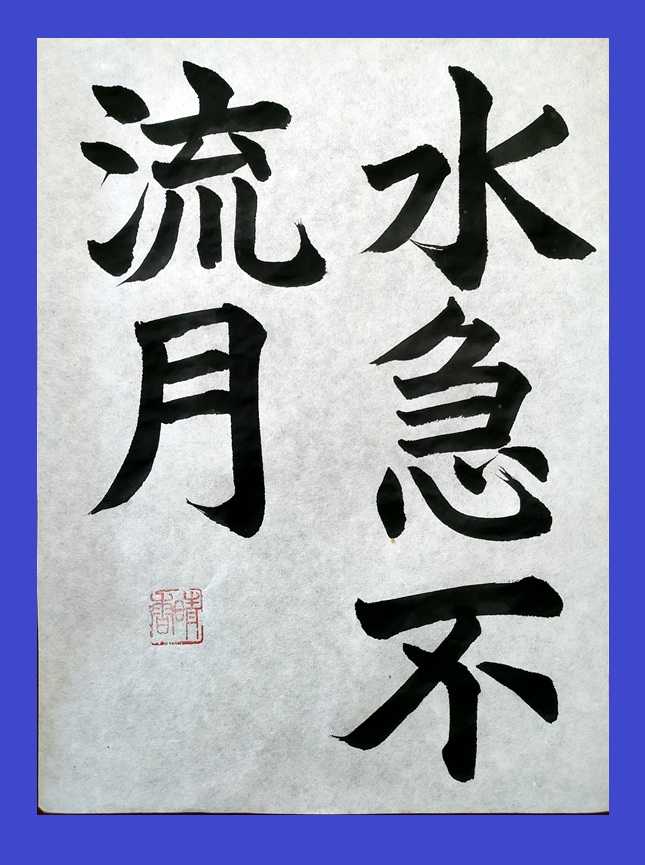 水急不
流月
晴香